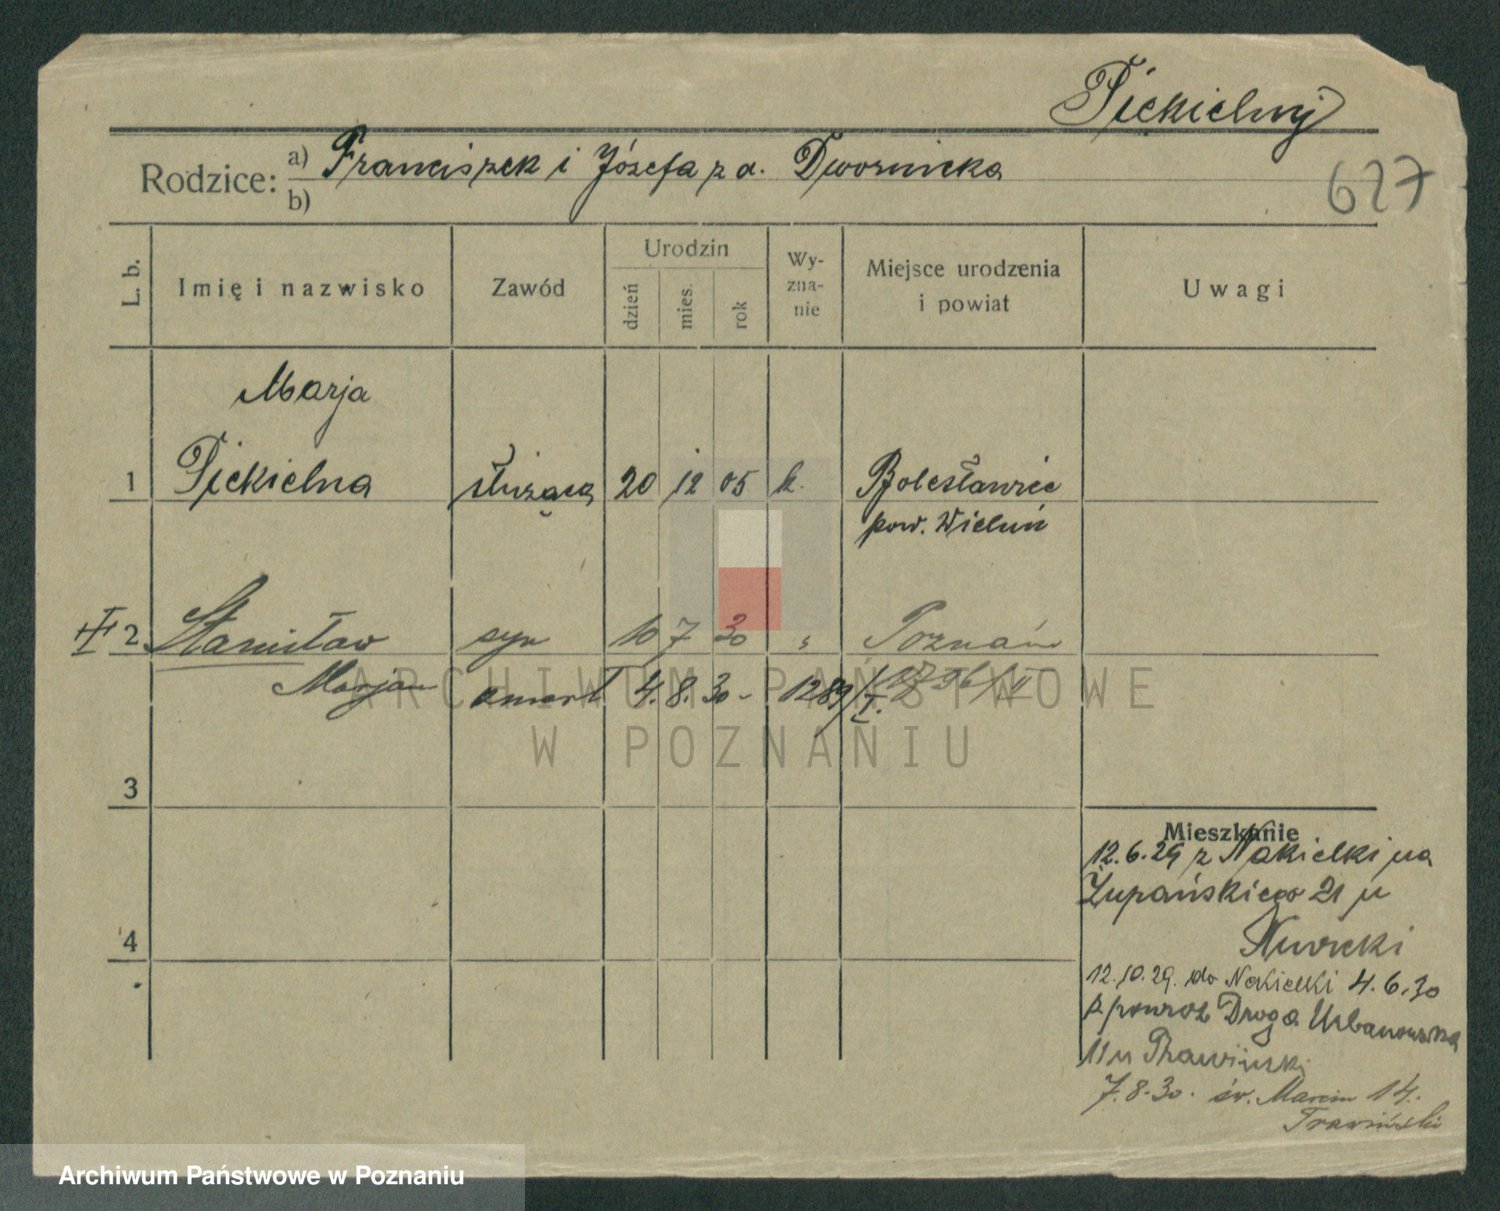 Piekielny
Rodzice: a) Franciszek i Józefa z d. Dwornicka
b)
627
L. b.
Imię i nazwisko
Zawód
Urodzin
dzień
mies.
rok
Wy-
zna-
nie
Miejsce urodzenia
i powiat
Uwagi
Marja
1 Piekielna służąca 20 12 05 k. Bolesławiec
pow. Wieluń
2 Stanisław syn 10 7 30 " Poznań
Marjan zmarł 4.8.30 - 1289/I.
ARCHIWUM PAŃSTWOWE
W POZNANIU
3
4
Mieszkanie
12.6.29 z Nakielki na
Żupańskiego 21 u
12.10.29. do Nakielki 4.6.30
z powrot Droga Urbanowska
11 u
7.8.30. św. Marcin 14.
Trawiński
Archiwum Państwowe w Poznaniu